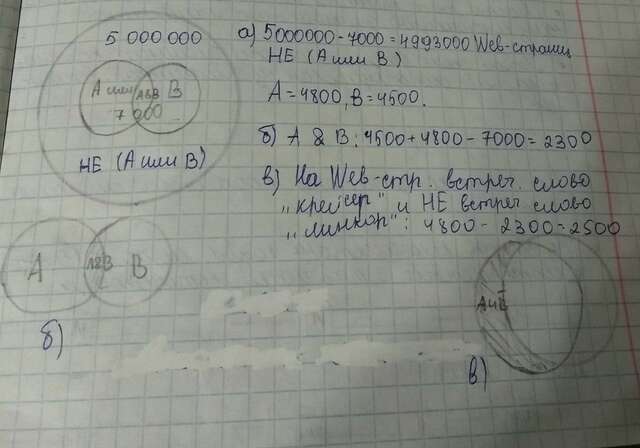 5 000 000
A или
A&B
B
7 000
НЕ (A или B)
а) 5000000 - 7000 = 4993000 Web-страниц
НЕ (A или B)
A = 4800, B = 4500.
б) A & B : 4500 + 4800 - 7000 = 2300
в) На Web-стр. встреч. слово
„крейсер" и НЕ встреч слово
„линкор": 4800 - 2300 = 2500
A
A&B
B
б)
в)